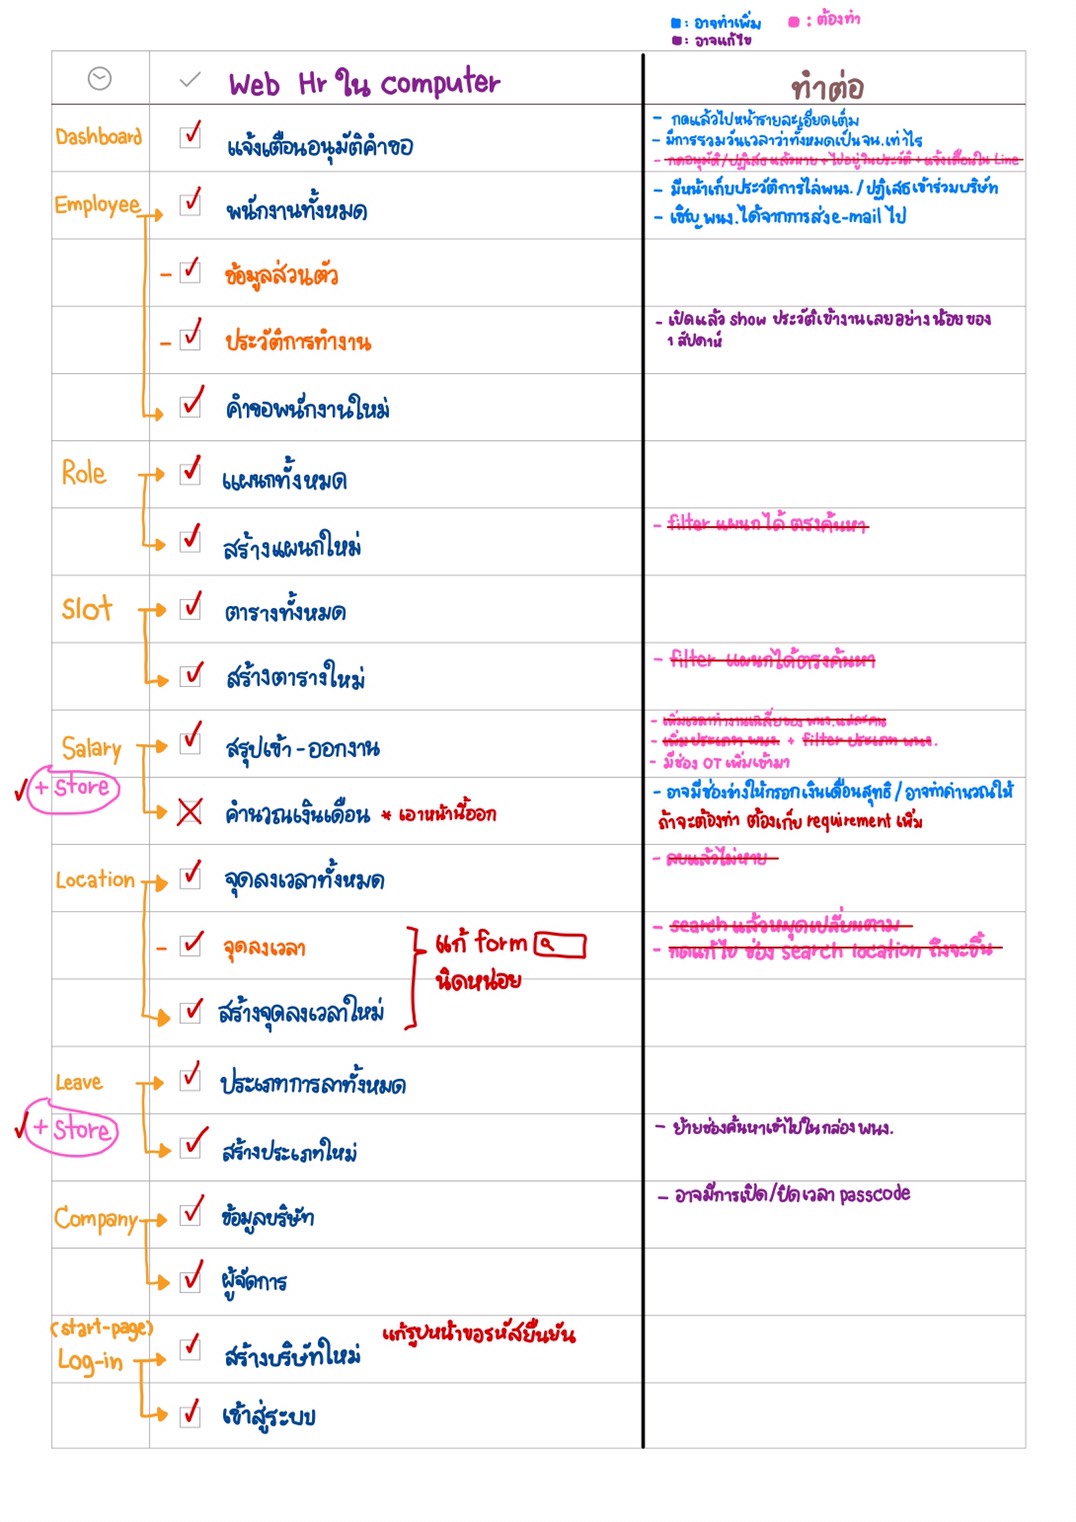 ■ : อาจทำเพิ่ม ■ : ต้องทำ
■ : อาจแก้ไข
Web Hr ใน computer
ทำต่อ
Dashboard
แจ้งเตือนอนุมัติคำขอ
- กดแล้วไปหน้ารายละเอียดเต็ม
- มีการรวมวันเวลาว่าทั้งหมดเป็นจน.เท่าไร
- กดอนุมัติ/ปฏิเสธ แล้วหาย + ไปอยู่ในประวัติ + แจ้งเตือนใน Line
Employee
พนักงานทั้งหมด
- มีหน้าเก็บประวัติการไล่พนง. / ปฏิเสธเข้าร่วมบริษัท
- เชิญ พนง. ได้จากการส่ง e-mail ไป
- ข้อมูลส่วนตัว
- ประวัติการทำงาน
- เปิดแล้ว show ประวัติเข้างานเลยอย่างน้อยของ
1 สัปดาห์
คำขอพนักงานใหม่
Role
แผนกทั้งหมด
สร้างแผนกใหม่
- filter แผนกได้ ตรงค้นหา
Slot
ตารางทั้งหมด
สร้างตารางใหม่
- filter แผนกได้ตรงค้นหา
Salary
สรุปเข้า - ออกงาน
- เพิ่มเวลาทำงานเฉลี่ยของ พนง. แต่ละคน
- เพิ่มประเภท พนง. + filter ประเภท พนง.
- มีช่อง OT เพิ่มเข้ามา
+ store
คำนวณเงินเดือน * เอาหน้านี้ออก
- อาจมีช่องว่างให้กรอกเงินเดือนสุทธิ / อาจทำคำนวณให้
ถ้าจะต้องทำ ต้องเก็บ requirement เพิ่ม
Location
จุดลงเวลาทั้งหมด
- ลบแล้วไม่หาย
- จุดลงเวลา
แก้ form
นิดหน่อย
- search แล้วหมุดเปลี่ยนตาม
- กดแก้ไข ช่อง search location ถึงจะขึ้น
สร้างจุดลงเวลาใหม่
Leave
ประเภทการลาทั้งหมด
+ store
สร้างประเภทใหม่
- ย้ายช่องค้นหาเข้าไปในกล่อง พนง.
Company
ข้อมูลบริษัท
- อาจมีการเปิด/ปิดเวลา passcode
ผู้จัดการ
(start-page)
Log-in
สร้างบริษัทใหม่
แก้รูปหน้าขอรหัสยืนยัน
เข้าสู่ระบบ